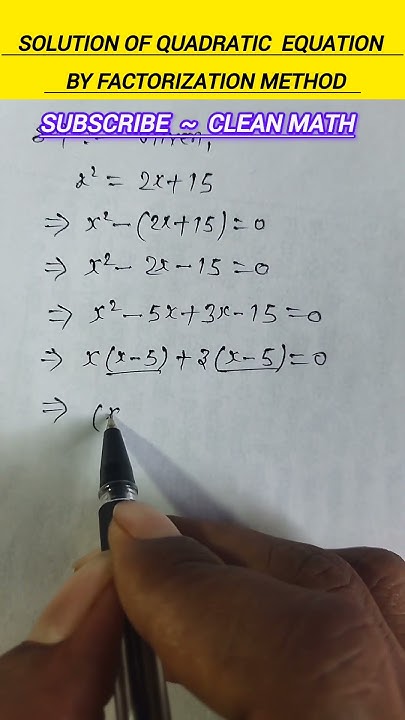 SOLUTION OF QUADRATIC EQUATION
BY FACTORIZATION METHOD
SUBSCRIBE ~ CLEAN MATH
x² = 2x+15
⇒ x² – (2x+15) = 0
⇒ x² – 2x – 15 = 0
⇒ x² – 5x + 3x – 15 = 0
⇒ x (x – 5) + 3 (x – 5) = 0
⇒ (x